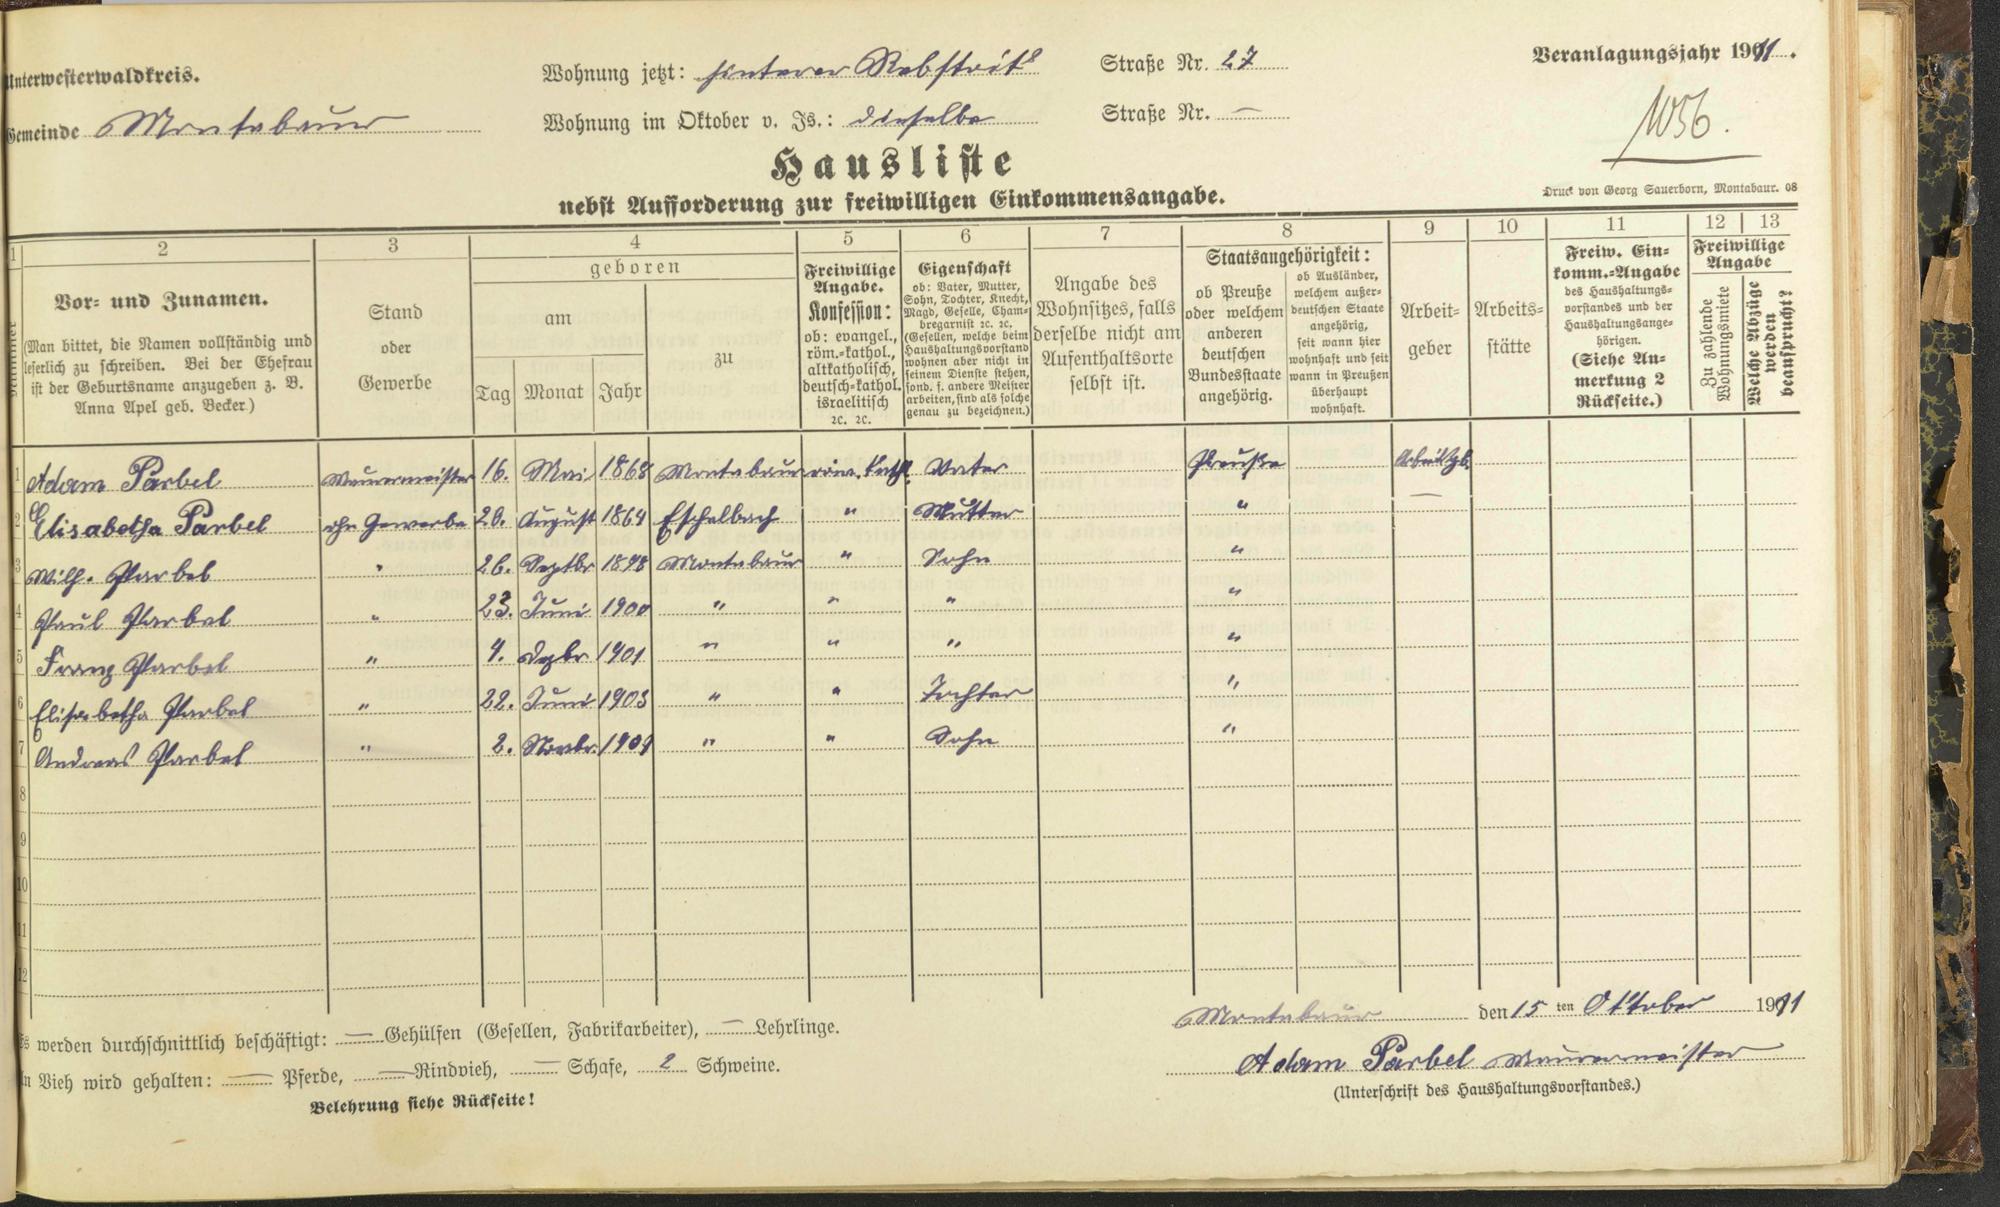 Unterwesterwaldkreis.
Gemeinde Montabaur
Wohnung jetzt: hinterer Rebstock Straße Nr. 27
Wohnung im Oktober v. Js.: dieselbe Straße Nr. —
Veranlagungsjahr 1911.
1056.
Hausliste
nebst Aufforderung zur freiwilligen Einkommensangabe.
Druck von Georg Sauerborn, Montabaur. 08
1 2 3 4 5 6 7 8 9 10 11 12 13
Nummer
Vor- und Zunamen.
(Man bittet, die Namen vollständig und
leserlich zu schreiben. Bei der Ehefrau
ist der Geburtsname anzugeben z. B.
Anna Apel geb. Becker.)
Stand
oder
Gewerbe
geboren
am
Tag Monat Jahr
zu
Freiwillige
Angabe.
Konfession:
ob: evangel.,
röm.-kathol.,
altkatholisch,
deutsch-kathol.
israelitisch
ꝛc. ꝛc.
Eigenschaft
ob: Vater, Mutter,
Sohn, Tochter, Knecht,
Magd, Geselle, Cham-
bregarnist ꝛc. ꝛc.
(Gesellen, welche beim
Haushaltungsvorstand
wohnen aber nicht in
seinem Dienste stehen,
sond. f. andere Meister
arbeiten, sind als solche
genau zu bezeichnen.)
Angabe des
Wohnsitzes, falls
derselbe nicht am
Aufenthaltsorte
selbst ist.
Staatsangehörigkeit:
ob Preuße
oder welchem
anderen
deutschen
Bundesstaate
angehörig.
ob Ausländer,
welchem außer-
deutschen Staate
angehörig,
seit wann hier
wohnhaft und seit
wann in Preußen
überhaupt
wohnhaft.
Arbeit-
geber
Arbeits-
stätte
Freiw. Ein-
komm.-Angabe
des Haushaltungs-
vorstandes und der
Haushaltungsange-
hörigen.
(Siehe An-
merkung 2
Rückseite.)
Freiwillige
Angabe
Zu zahlende
Wohnungsmiete
Welche Abzüge
werden
beansprucht?
1 Adam Parbel Maurermeister 16. Mai 1868 Montabaur röm. kathl. Vater Preuße Arbeitgb.
2 Elisabetha Parbel ohn Gewerbe 29. August 1864 Eschelbach " Mutter " —
3 Wilh. Parbel " 26. Septbr 1898 Montabaur " Sohn "
4 Paul Parbel " 23. Juni 1900 " " " "
5 Franz Parbel " 4. Dezbr 1901 " " " "
6 Elisabetha Parbel " 22. Juni 1903 " " Tochter "
7 Andreas Parbel " 2. Novbr. 1909 " " Sohn "
8
9
10
11
12
Es werden durchschnittlich beschäftigt: — Gehülfen (Gesellen, Fabrikarbeiter), — Lehrlinge.
An Vieh wird gehalten: — Pferde, — Rindvieh, — Schafe, 2 Schweine.
Belehrung siehe Rückseite!
Montabaur den 15 ten Oktober 1911
Adam Parbel Maurermeister
(Unterschrift des Haushaltungsvorstandes.)